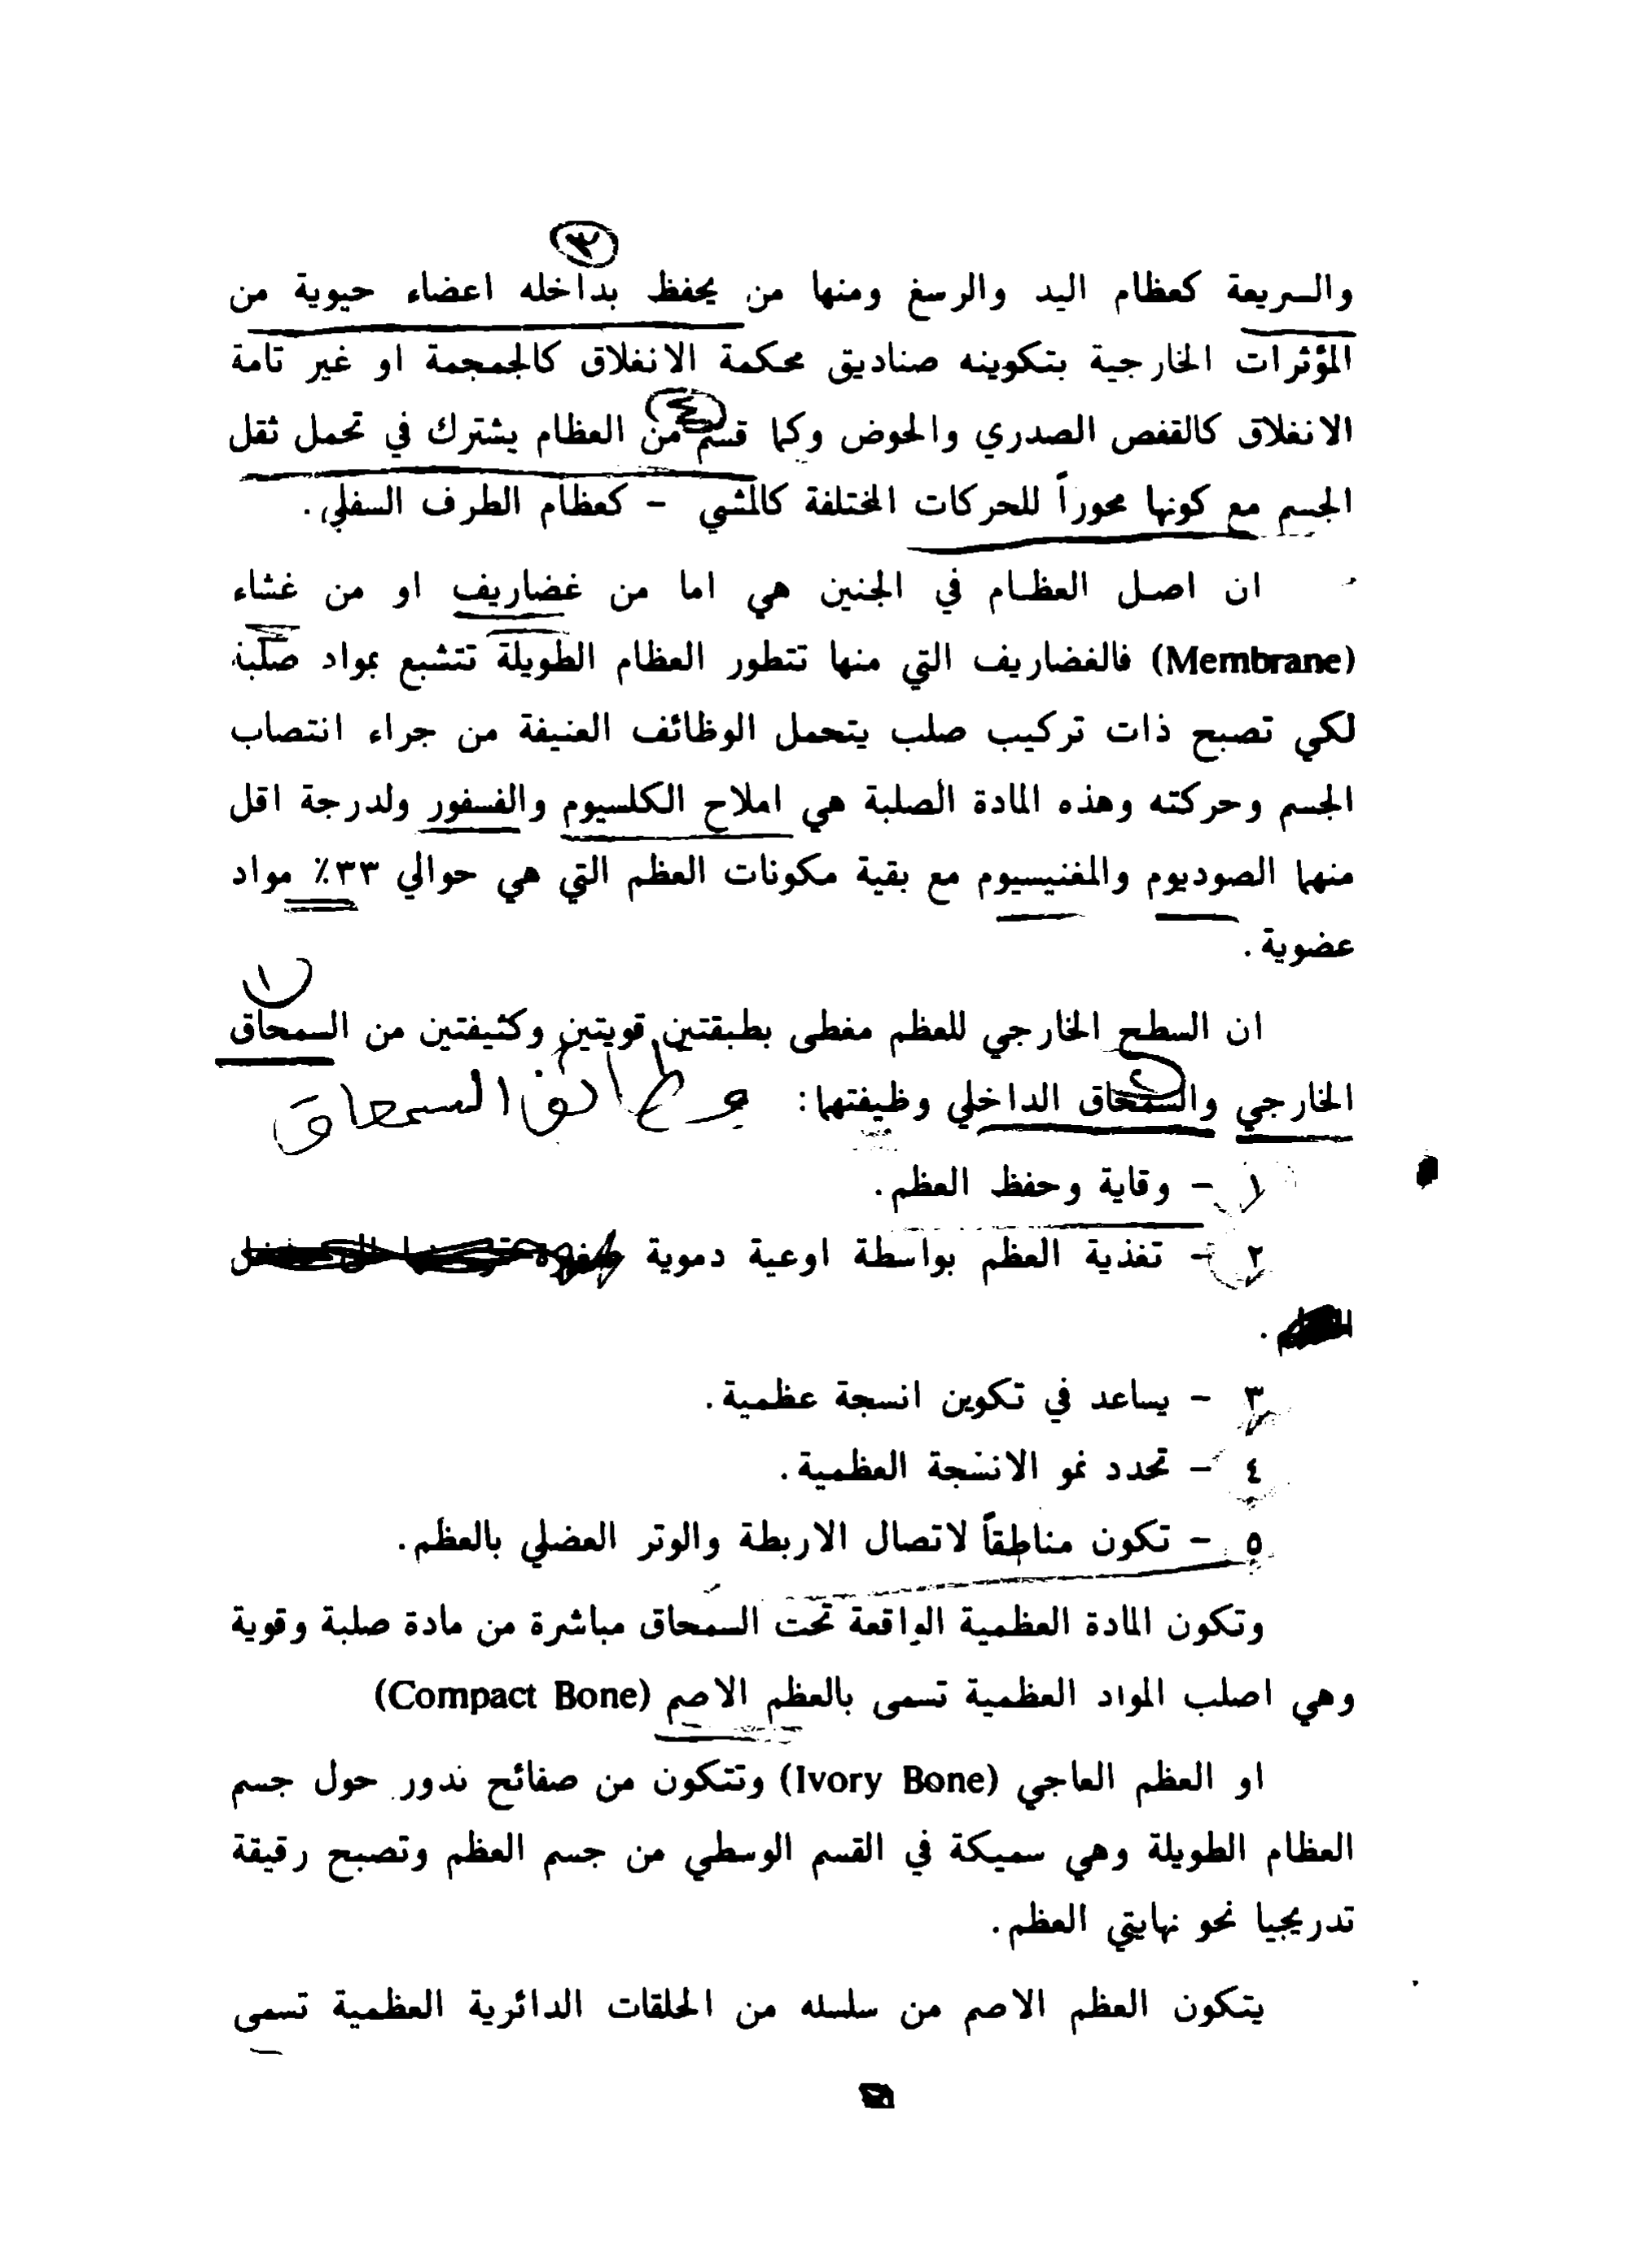 ٣
والسريعة كعظام اليد والرسغ ومنها من يحفظ بداخله اعضاء حيوية من
المؤثرات الخارجية بتكوينه صناديق محكمة الانغلاق كالجمجمة او غير تامة
٤
الانغلاق كالقفص الصدري والحوض وكما قسم من العظام يشترك في تحمل ثقل
الجسم مع كونها محوراً للحركات المختلفة كالمشي - كعظام الطرف السفلي.
ان اصل العظام في الجنين هي اما من غضاريف او من غشاء
(Membrane) فالغضاريف التي منها تتطور العظام الطويلة تتشبع بمواد صلبة
لكي تصبح ذات تركيب صلب يتحمل الوظائف العنيفة من جراء انتصاب
الجسم وحركته وهذه المادة الصلبة هي املاح الكلسيوم والفسفور ولدرجة اقل
منهما الصوديوم والمغنيسيوم مع بقية مكونات العظم التي هي حوالي ٣٣٪ مواد
عضوية.
١
ان السطح الخارجي للعظم مغطى بطبقتين قويتين وكثيفتين من السمحاق
الخارجي والسمحاق الداخلي وظيفتهما: وظائف السمحاق
١ - وقاية وحفظ العظم.
٢ - تغذية العظم بواسطة اوعية دموية
٣ - يساعد في تكوين انسجة عظمية.
٤ - تحدد نمو الانسجة العظمية.
٥ - تكون مناطقاً لاتصال الاربطة والوتر العضلي بالعظم.
وتكون المادة العظمية الواقعة تحت السمحاق مباشرة من مادة صلبة وقوية
وهي اصلب المواد العظمية تسمى بالعظم الاصم (Compact Bone)
او العظم العاجي (Ivory Bone) وتتكون من صفائح ندور حول جسم
العظام الطويلة وهي سميكة في القسم الوسطي من جسم العظم وتصبح رقيقة
تدريجيا نحو نهايتي العظم.
يتكون العظم الاصم من سلسله من الحلقات الدائرية العظمية تسمى